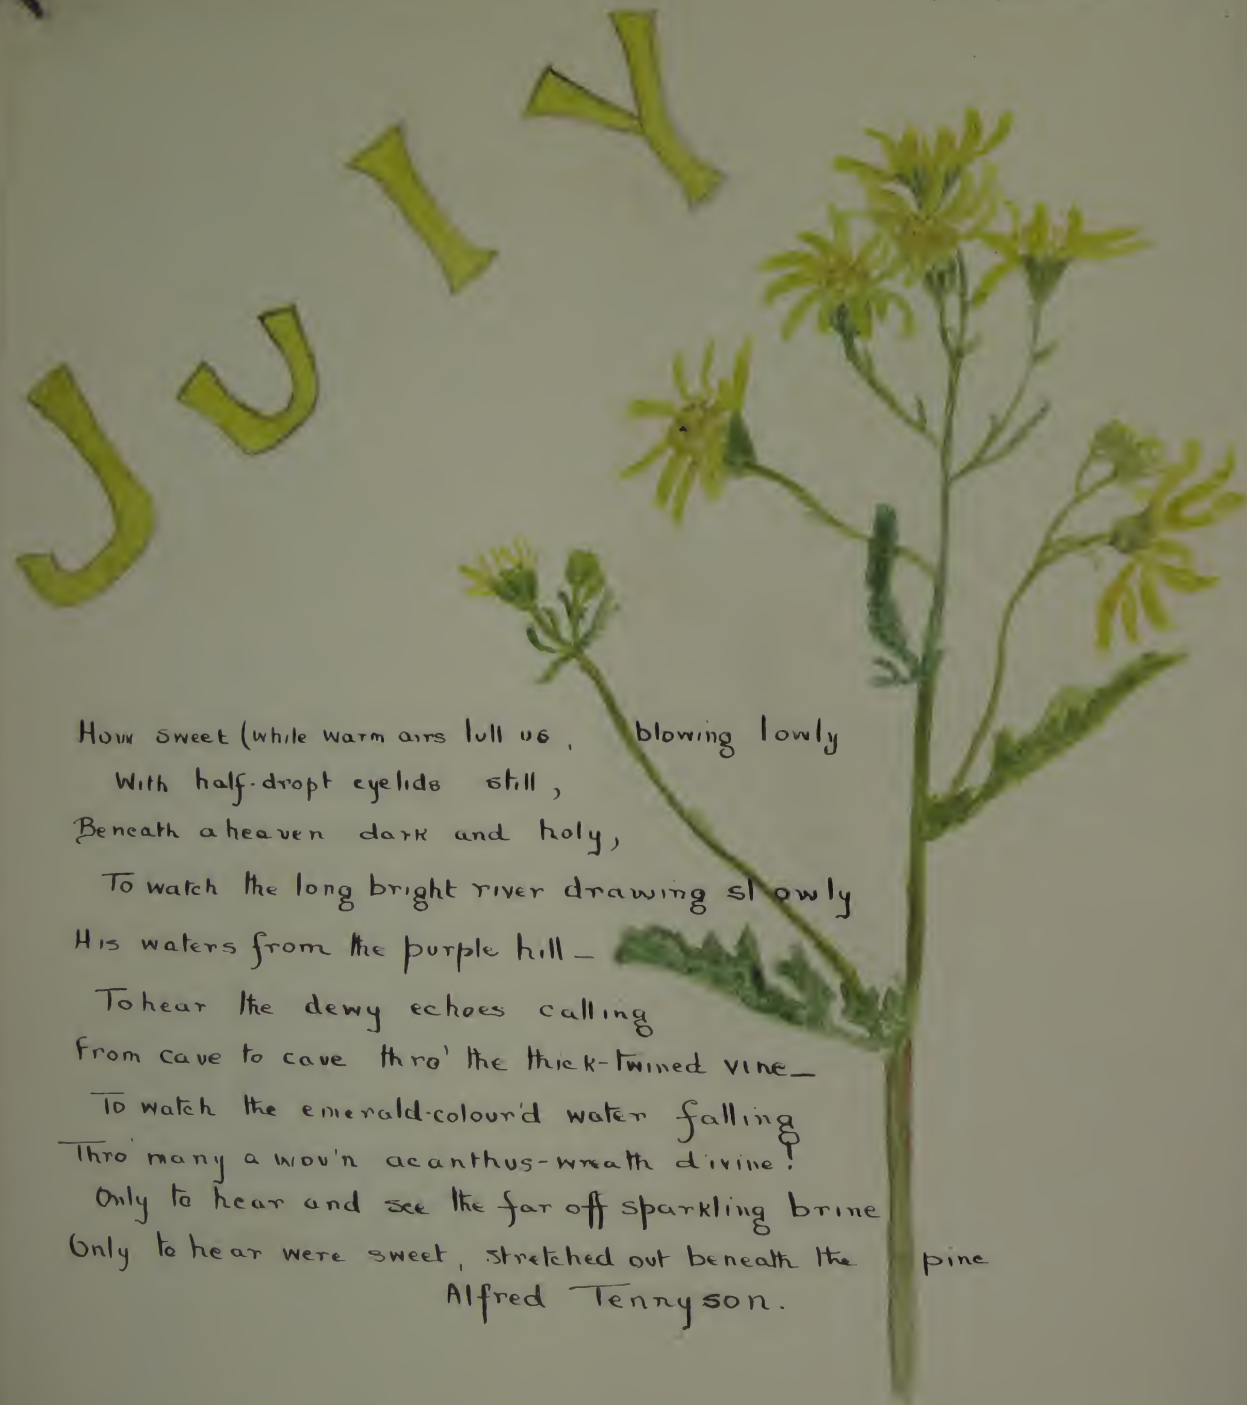 JULY
How sweet (while warm airs lull us, blowing lowly
With half-dropt eyelids still,
Beneath a heaven dark and holy,
To watch the long bright river drawing slowly
His waters from the purple hill—
To hear the dewy echoes calling
From cave to cave thro' the thick-twined vine—
To watch the emerald-colour'd water falling
Thro' many a wov'n acanthus-wreath divine!
Only to hear and see the far off sparkling brine
Only to hear were sweet, stretched out beneath the pine
Alfred Tennyson.